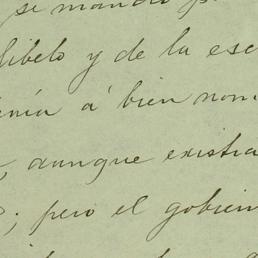 se mandó p
libelo y de la esc
enía á bien nom
, aunque existia
; pero el gobien